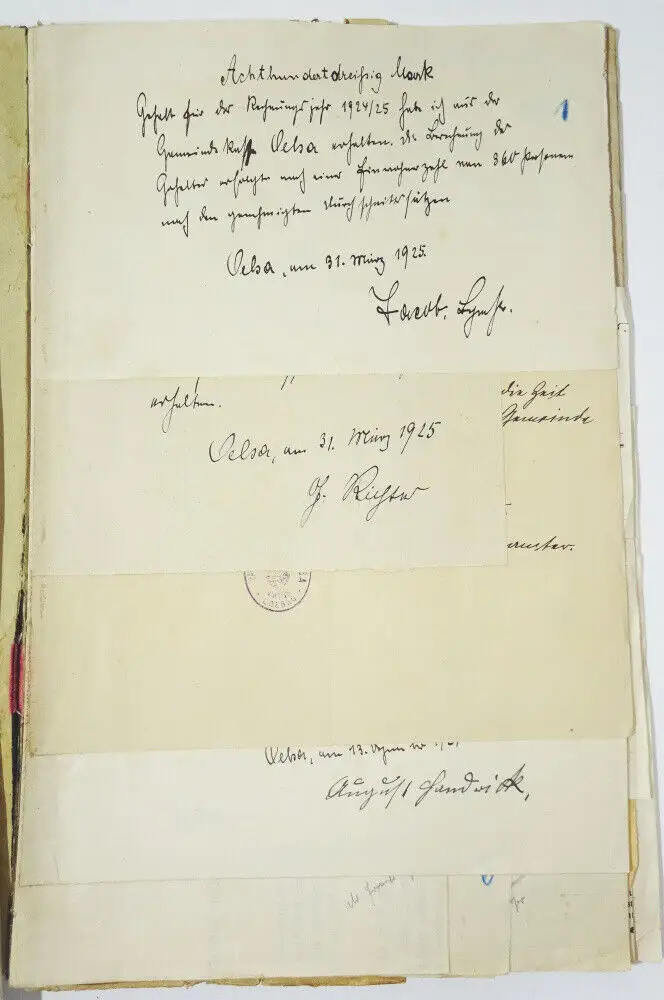 Achthundertdreißig Mark
Gehalt für das Rechnungsjahr 1924/25 habe ich aus der
Gemeindekasse Oelsa erhalten. Die Berechnung des
Gehaltes erfolgte nach einer Einwohnerzahl von 360 Personen
nach den genehmigten Durchschnittssätzen
1
Oelsa, am 31. März 1925.
Jacob,
erhalten.
die Zeit
Gemeinde
Oelsa, am 31. März 1925
Richter
Oelsa, am 13.
August Handrick,